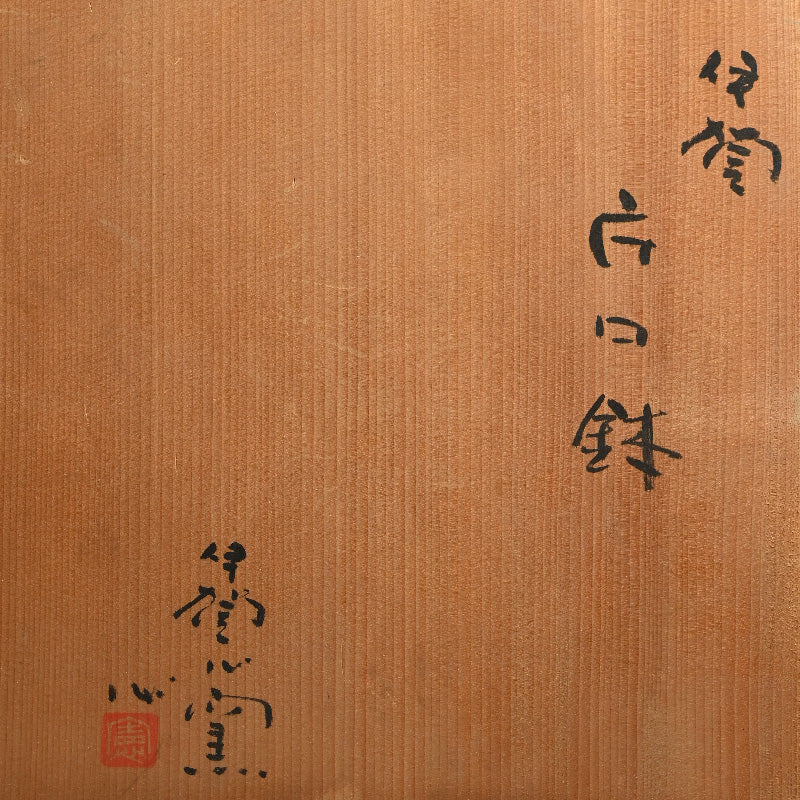 伊賀
片口鉢
伊賀心窯
心
憲